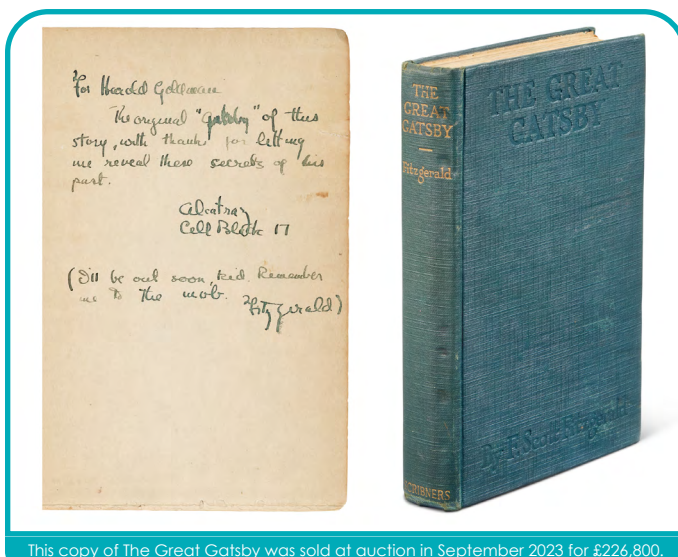 For Harold Goldman
The original "Gatsby" of this
story, with thanks for letting
me reveal these secrets of his
past.
Alcatraz
Cell Block 17
(I'll be out soon, kid. Remember
me to the mob. Fitzgerald)
THE
GREAT
GATSBY
Fitzgerald
SCRIBNERS
THE GREAT
GATSBY
By F. Scott Fitzgerald
This copy of The Great Gatsby was sold at auction in September 2023 for £226,800.